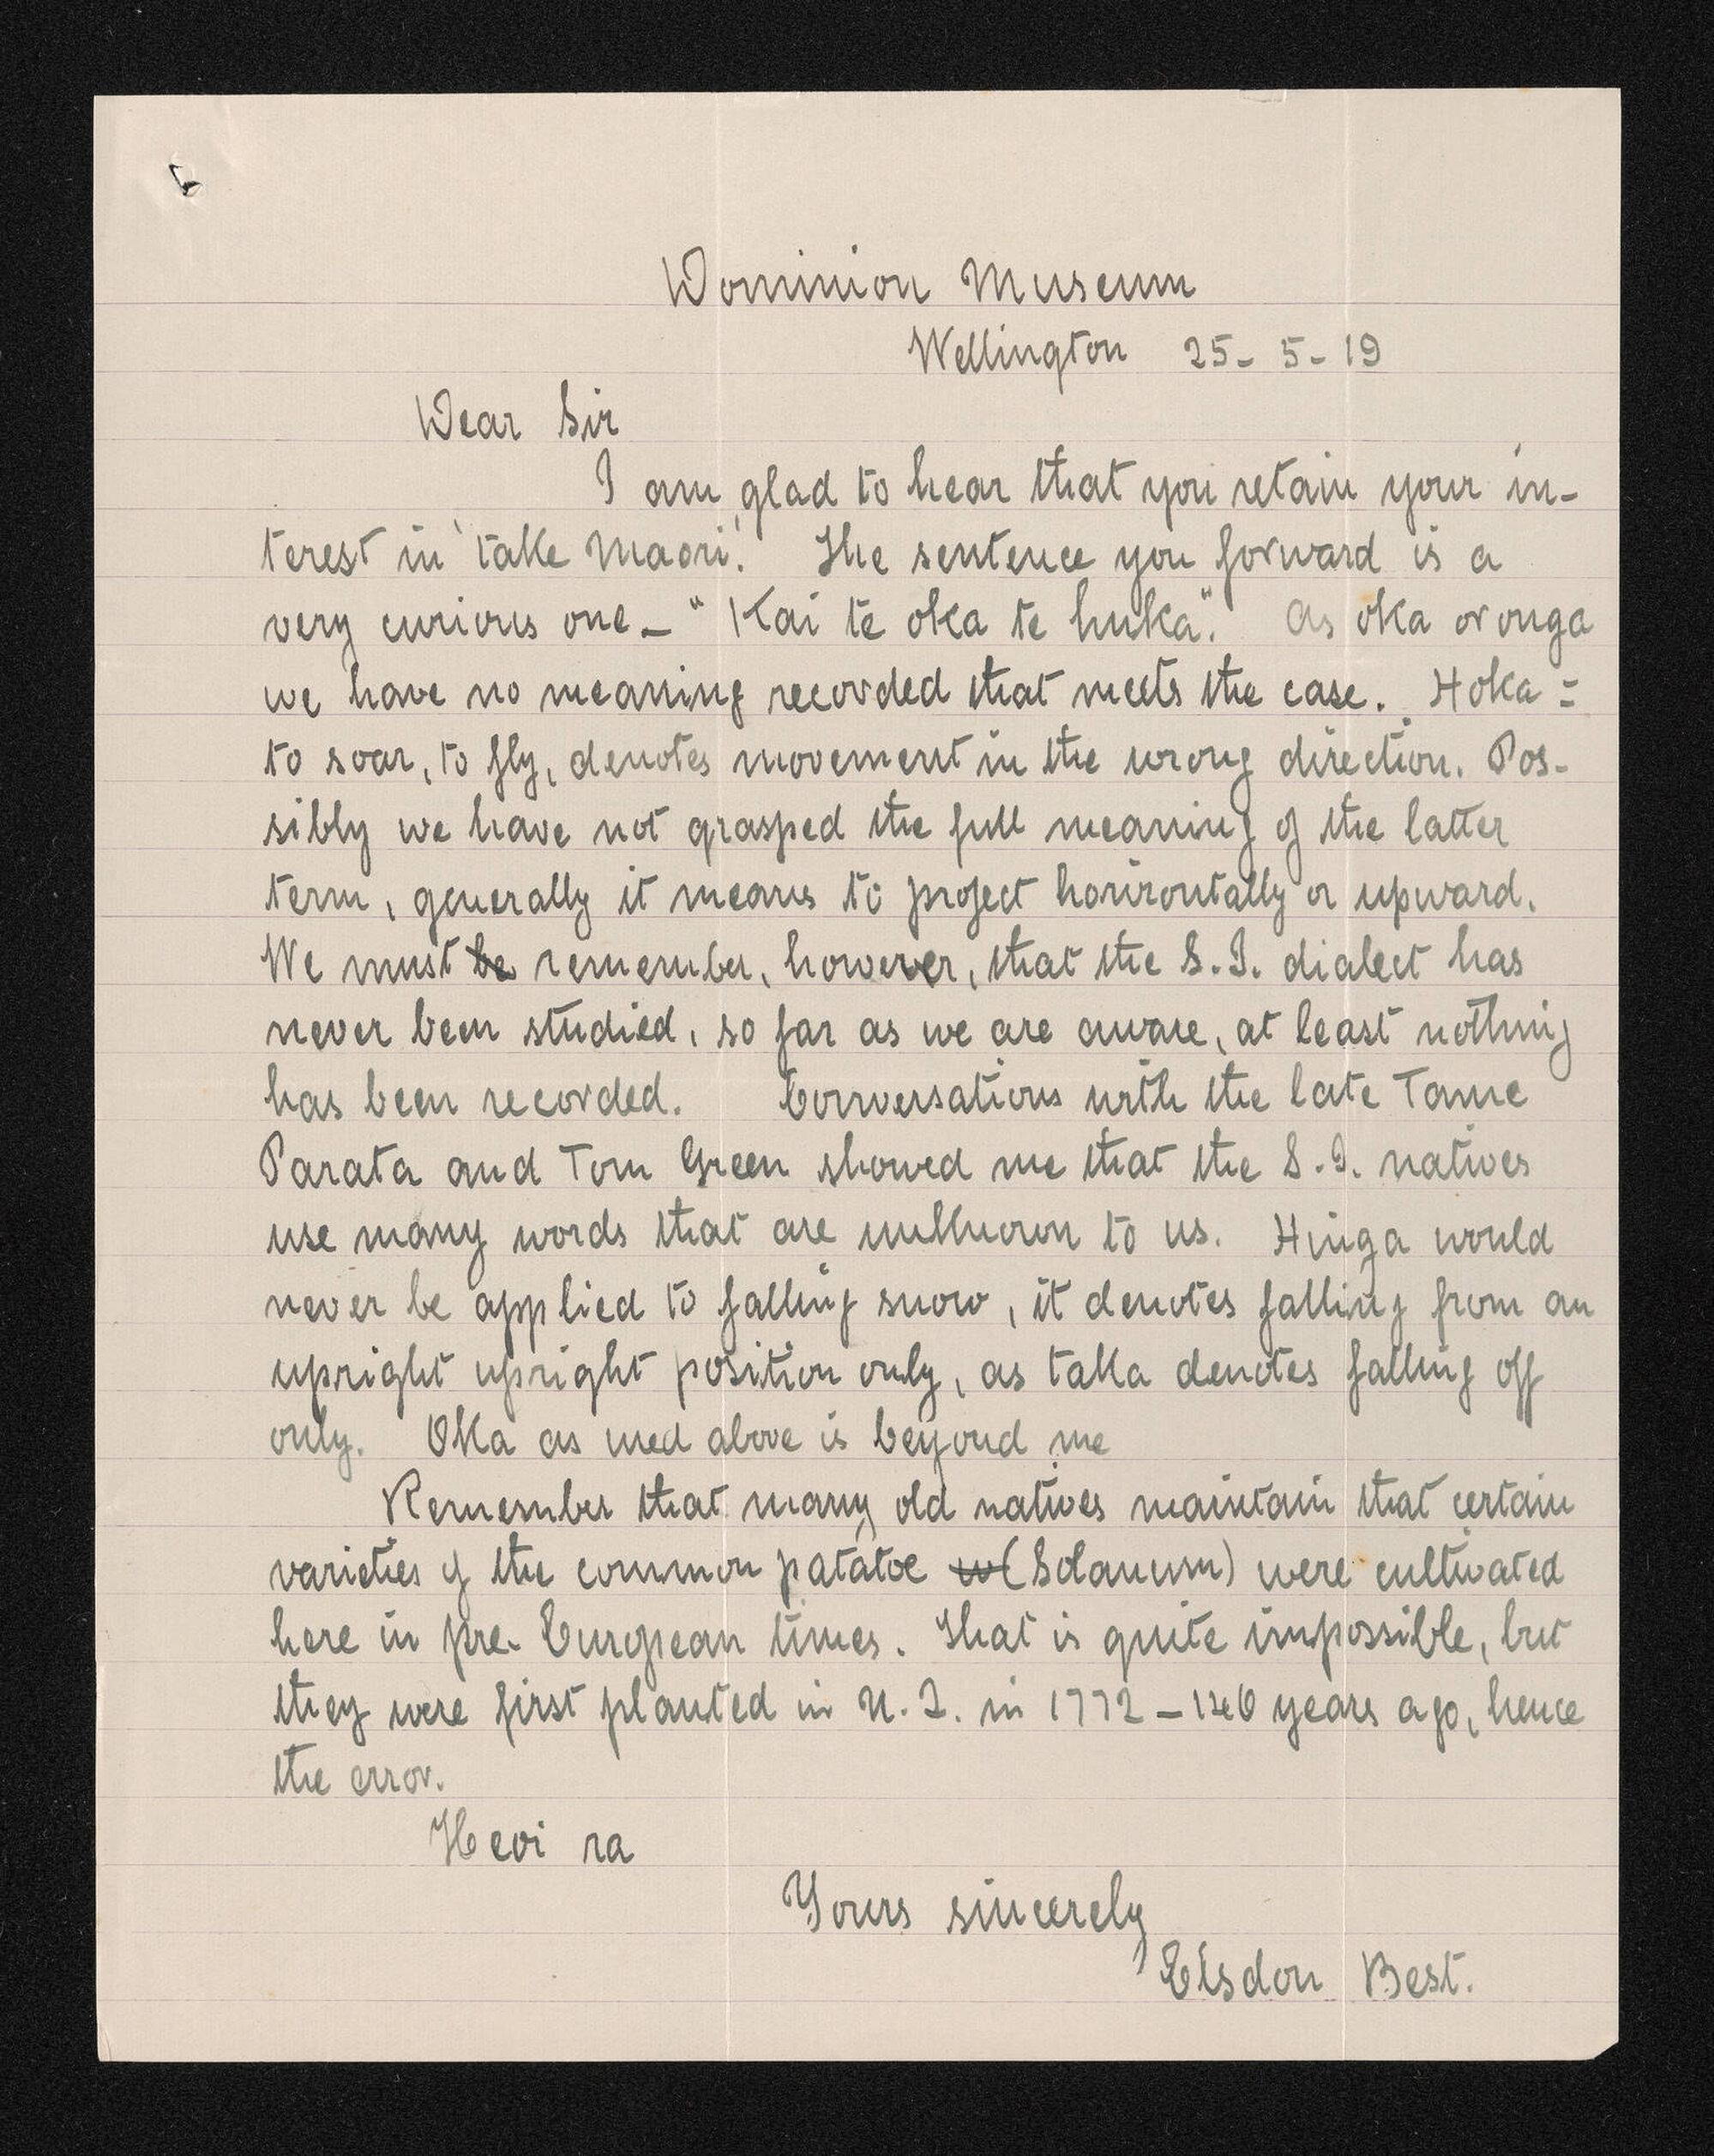 Dominion Museum
Wellington 25-5-19
Dear Sir
I am glad to hear that you retain your in-
terest in 'take Maori'. The sentence you forward is a
very curious one - "Kai te oka te huka". As oka or onga
we have no meaning recorded that meets the case. Hoka =
to soar, to fly, denotes movement in the wrong direction. Pos-
sibly we have not grasped the full meaning of the latter
term, generally it means to project horizontally or upward.
We must be remember, however, that the S.I. dialect has
never been studied, so far as we are aware, at least nothing
has been recorded. Conversations with the late Tame
Parata and Tom Green showed me that the S.I. natives
use many words that are unknown to us. Hinga would
never be applied to falling snow, it denotes falling from an
upright upright position only, as taka denotes falling off
only. Oka as used above is beyond me
Remember that many old natives maintain that certain
varieties of the common patatoe (Solanum) were cultivated
here in pre-European times. That is quite impossible, but
they were first planted in N.I. in 1772 - 146 years ago, hence
the error.
Heoi ra
Yours sincerely
Elsdon Best.